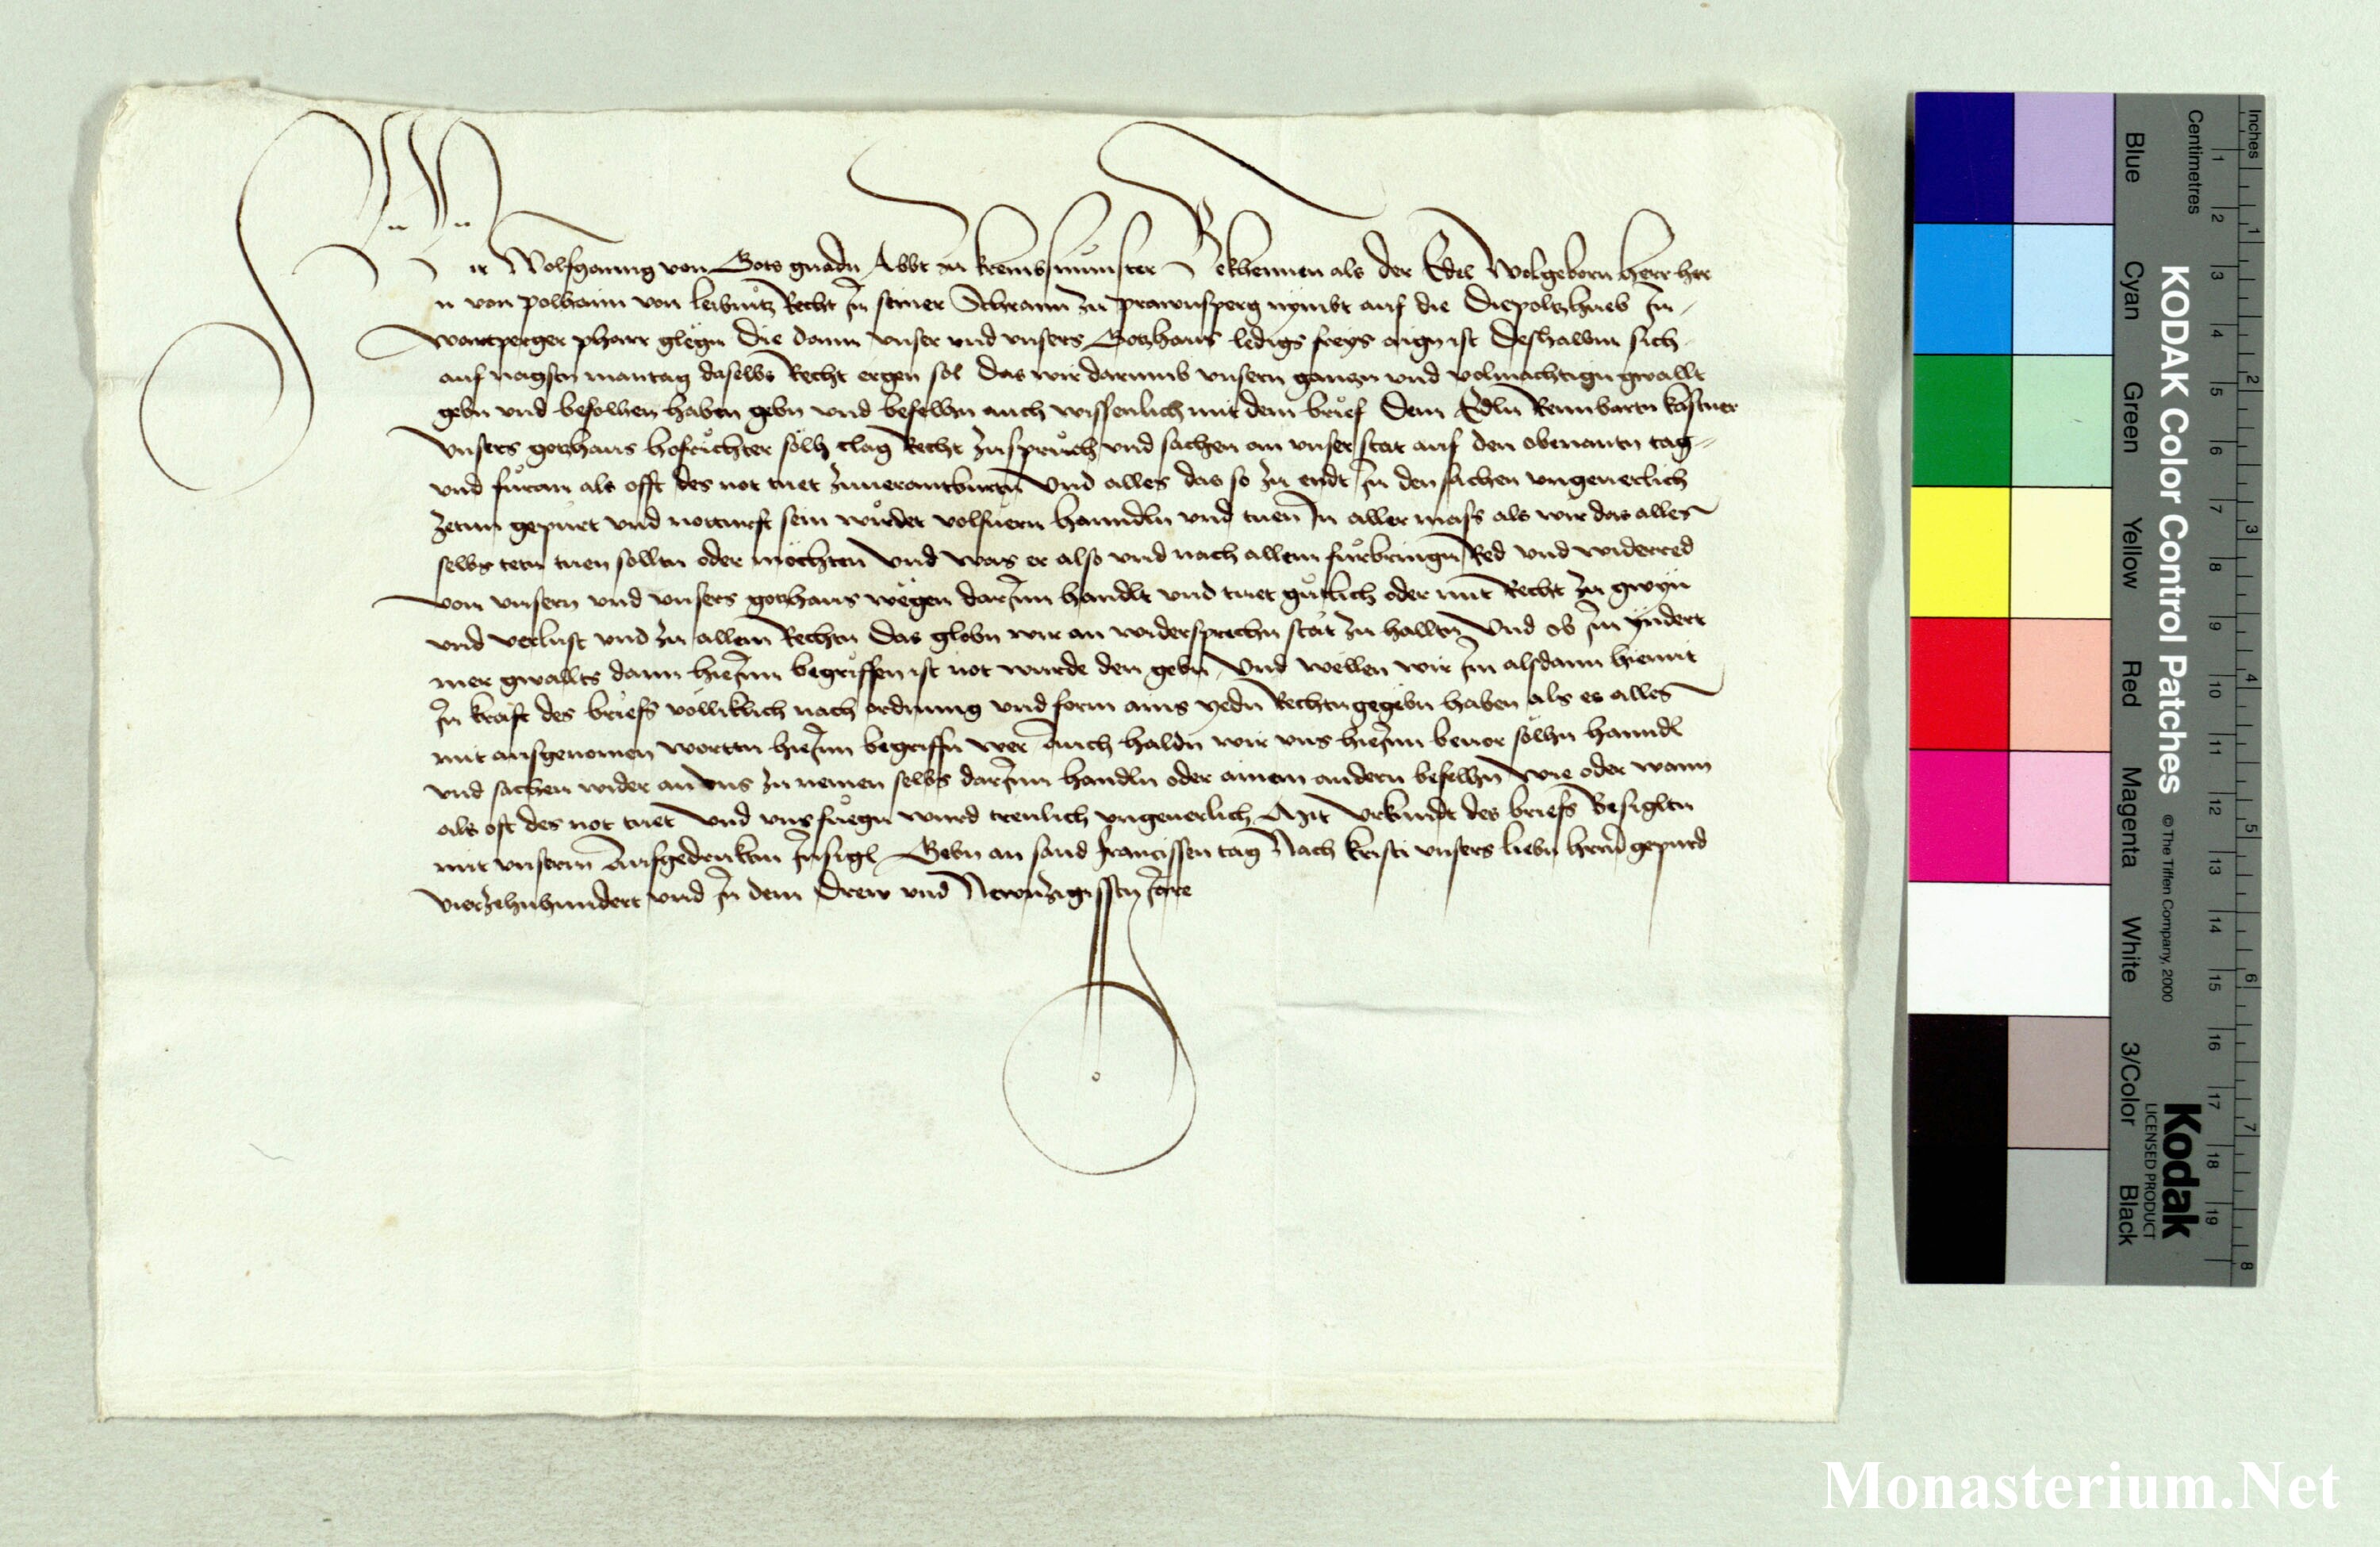 Wir Wolfganng von Gots gnadn Abbt zu kremsmunster Bekhennen als der Edel Wolgeborn herr her
n von polhaim von leibnitz Recht Jn seiner Schrann zu prawnsperg nymbt auf die Diepoltzhueb Jn
wartperger pharr glegn die dann vnser vnd vnsers Gotzhaus ledigs freys aign ist deshalbm sich
auf nagstn mantag daselbs Recht ergen sol das wir darumb vnsern ganntzn vnd volmachtign gwallt
gebn vnd befolhen haben gebn vnd befelhn auch wissenlich mit dem brief dem Edln Reinbartn kastner
vnsers gotzhaus hofrichter solh clag Recht zuspruch vnd sachen an vnser stat auf den obenantn tag
vnd furan als offt des not tuet zuuerantburtn Vnd alles das so zu endt Jn den sachen vngeuerlich
zetun gepurt vnd notturft sein wurdet volfuern hanndln vnd tuen Jn aller mass als wir das alles
selbs tetn tuen solltn oder mochten Vnd was er also vnd nach allem furbringn Red vnd widerred
von vnsern vnd vnsers gotzhaus wegen darJnn handlt vnd tuet gutlich oder mit Recht zu gwyn
vnd verlust vnd zu allem Rechtn das globn wir an widersprechn stat zu halltn Vnd ob Jm yndert
mer gwallts dann hieJnn begriffen ist not wurde den gebn Vnd wellen wir Jm alsdann hiemit
Jn kraft des briefs volliklich nach ordnung vnd form ains yedn Rechtn gegebn haben als es alles
mit ausgenomen wortn hieJnn begriffn wer Auch haldn wir vns hieJnn beuor solhn hanndl
vnd sachen wider an vns zu nemen selbs darJnn handln oder ainem andern befelhn wie oder wann
als oft des not tuet Vnd vns fuegn wurd treulich vngeuerlich Mit Vrkundt des briefs Besigltn
mit vnserm Aufgedrukten Jnsigl Gebn an sand Francissen tag Nach kristi vnsers liebn hern gepurd
vierzehnhundert vnd Jn dem Drew vnd Newnzigisstn Jare
KODAK Color Control Patches © The Tiffen Company, 2000
Kodak
LICENSED PRODUCT
Inches 1 2 3 4 5 6 7 8
Centimetres 1 2 3 4 5 6 7 8 9 10 11 12 13 14 15 16 17 18 19
Blue Cyan Green Yellow Red Magenta White 3/Color Black
Monasterium.Net